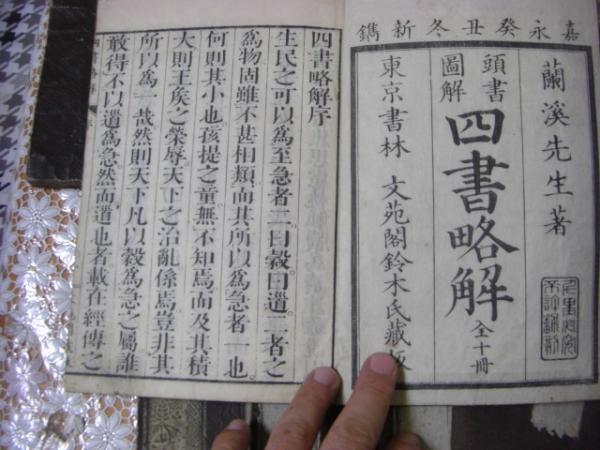 嘉永癸丑冬新鐫
蘭溪先生著
頭書
圖解
四書略解
全十冊
東京書林 文苑閣鈴木氏藏板
四書略解序
生民之可以為至急者二曰穀曰道二者之
為物固雖不甚相類而其所以為急者一也
何則其小也孩提之童無不知焉而及其積
大則王侯之榮辱天下之治亂係焉豈非其
所以為一哉然則天下凡以穀為急之屬誰
敢得不以道為急然而道也者載在經傳之